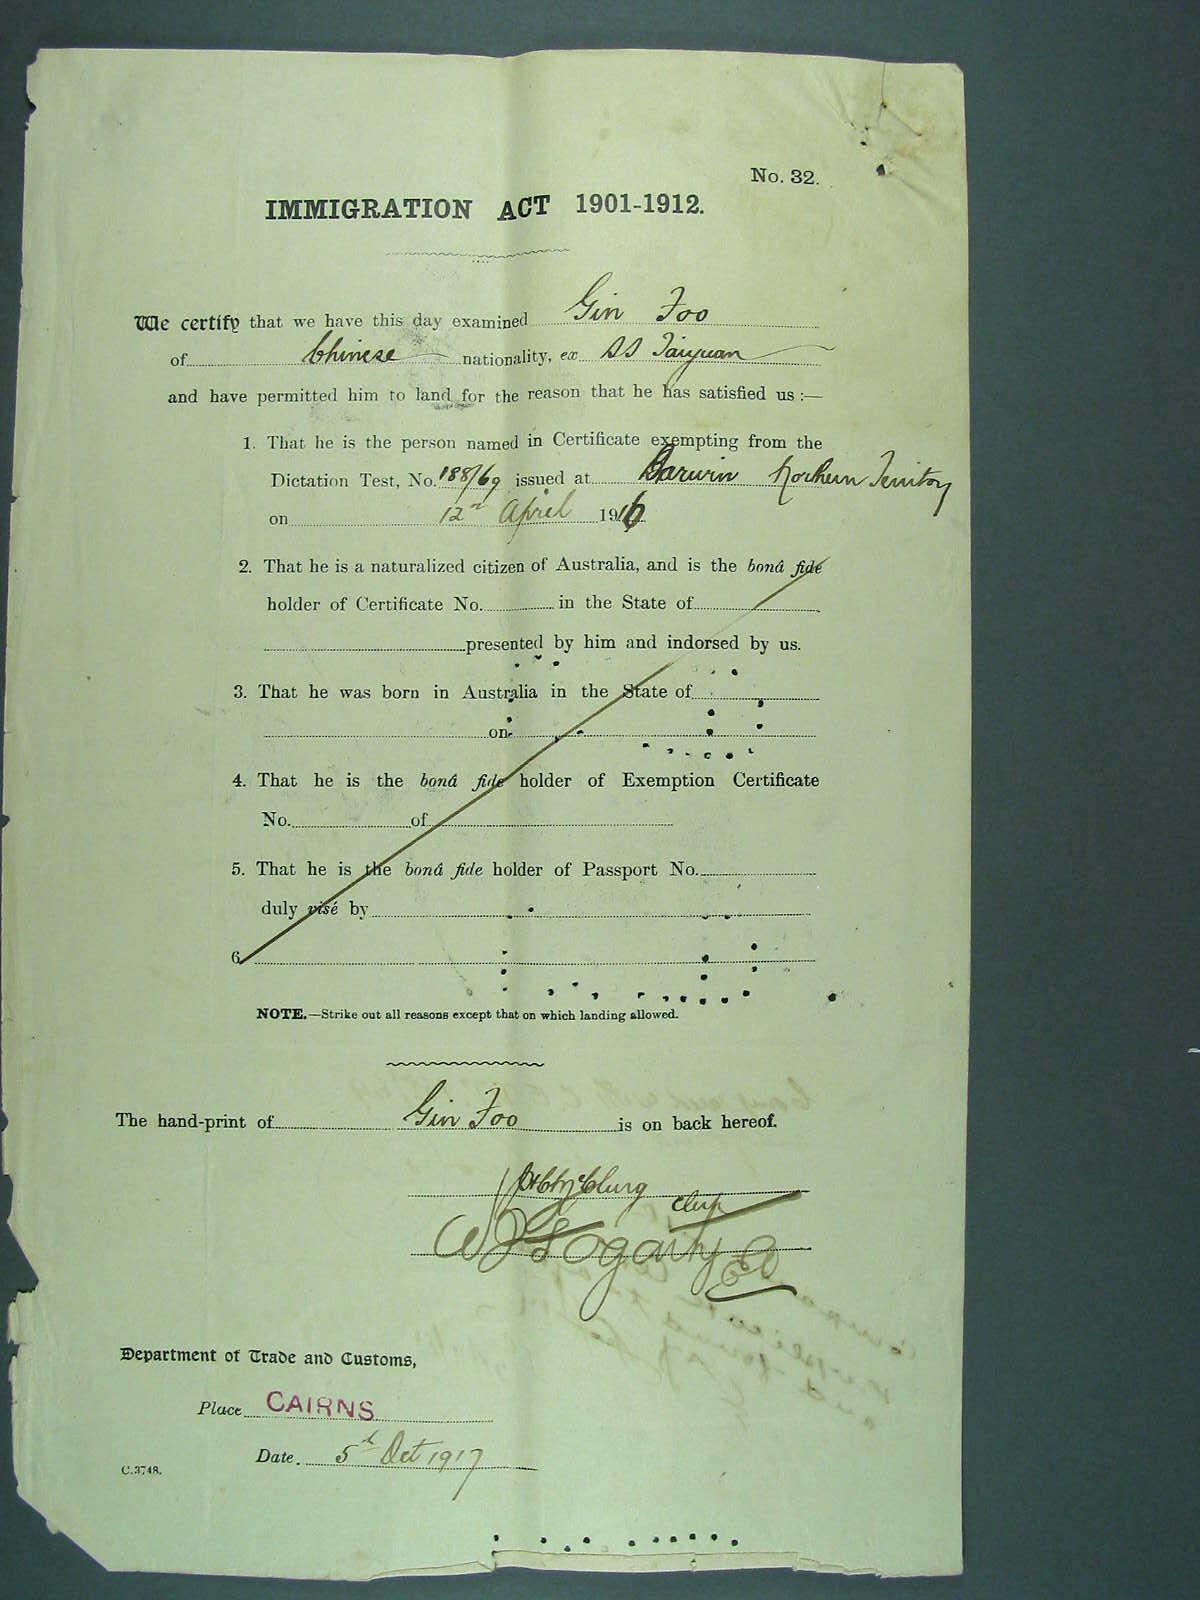 No. 32.
IMMIGRATION ACT 1901-1912.
We certify that we have this day examined Gin Foo
of Chinese nationality, ex SS Taiyuan
and have permitted him to land for the reason that he has satisfied us :—
1. That he is the person named in Certificate exempting from the
Dictation Test, No. 188/69 issued at Darwin Northern Territory
on 12th April 1916
2. That he is a naturalized citizen of Australia, and is the bonâ fide
holder of Certificate No. in the State of
presented by him and indorsed by us.
3. That he was born in Australia in the State of
on
4. That he is the bonâ fide holder of Exemption Certificate
No. of
5. That he is the bonâ fide holder of Passport No.
duly visé by
6.
NOTE.—Strike out all reasons except that on which landing allowed.
The hand-print of Gin Foo is on back hereof.
Fogarty
Department of Trade and Customs,
Place CAIRNS
Date. 5th Oct 1917
C.3748.